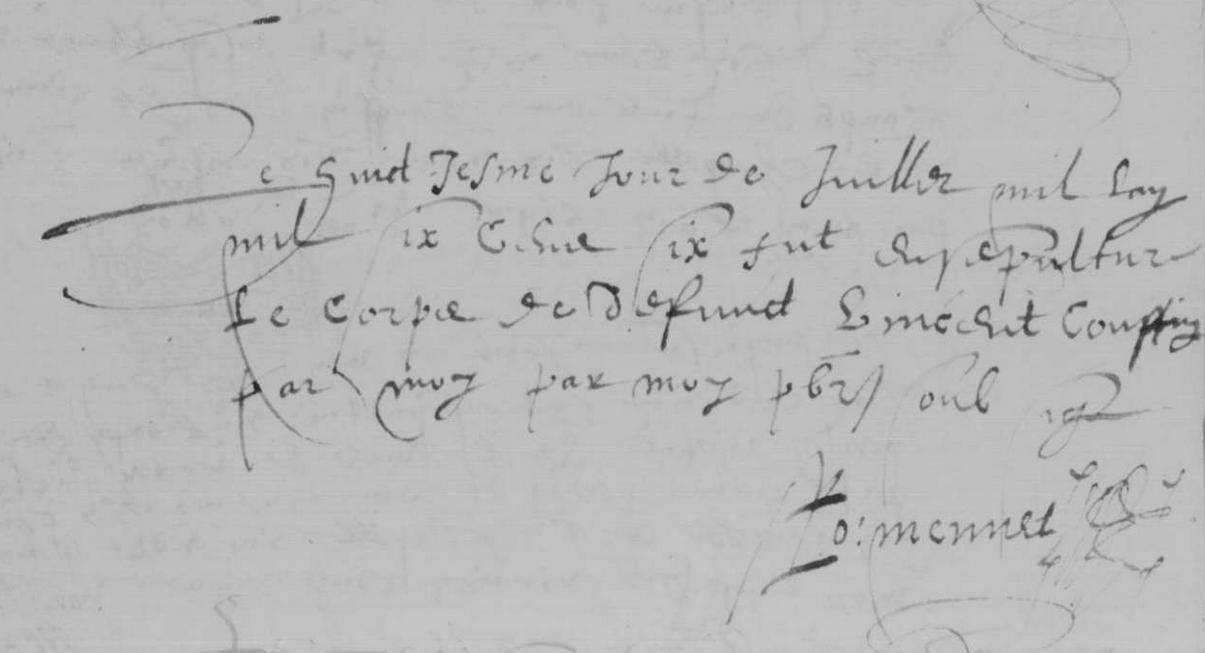 Le huictiesme Jour de Juillet mil Lay
mil six Centz six fut ensepultur
Le Corps de Defunct Vincent
par moy par moy pbre soub
mennet